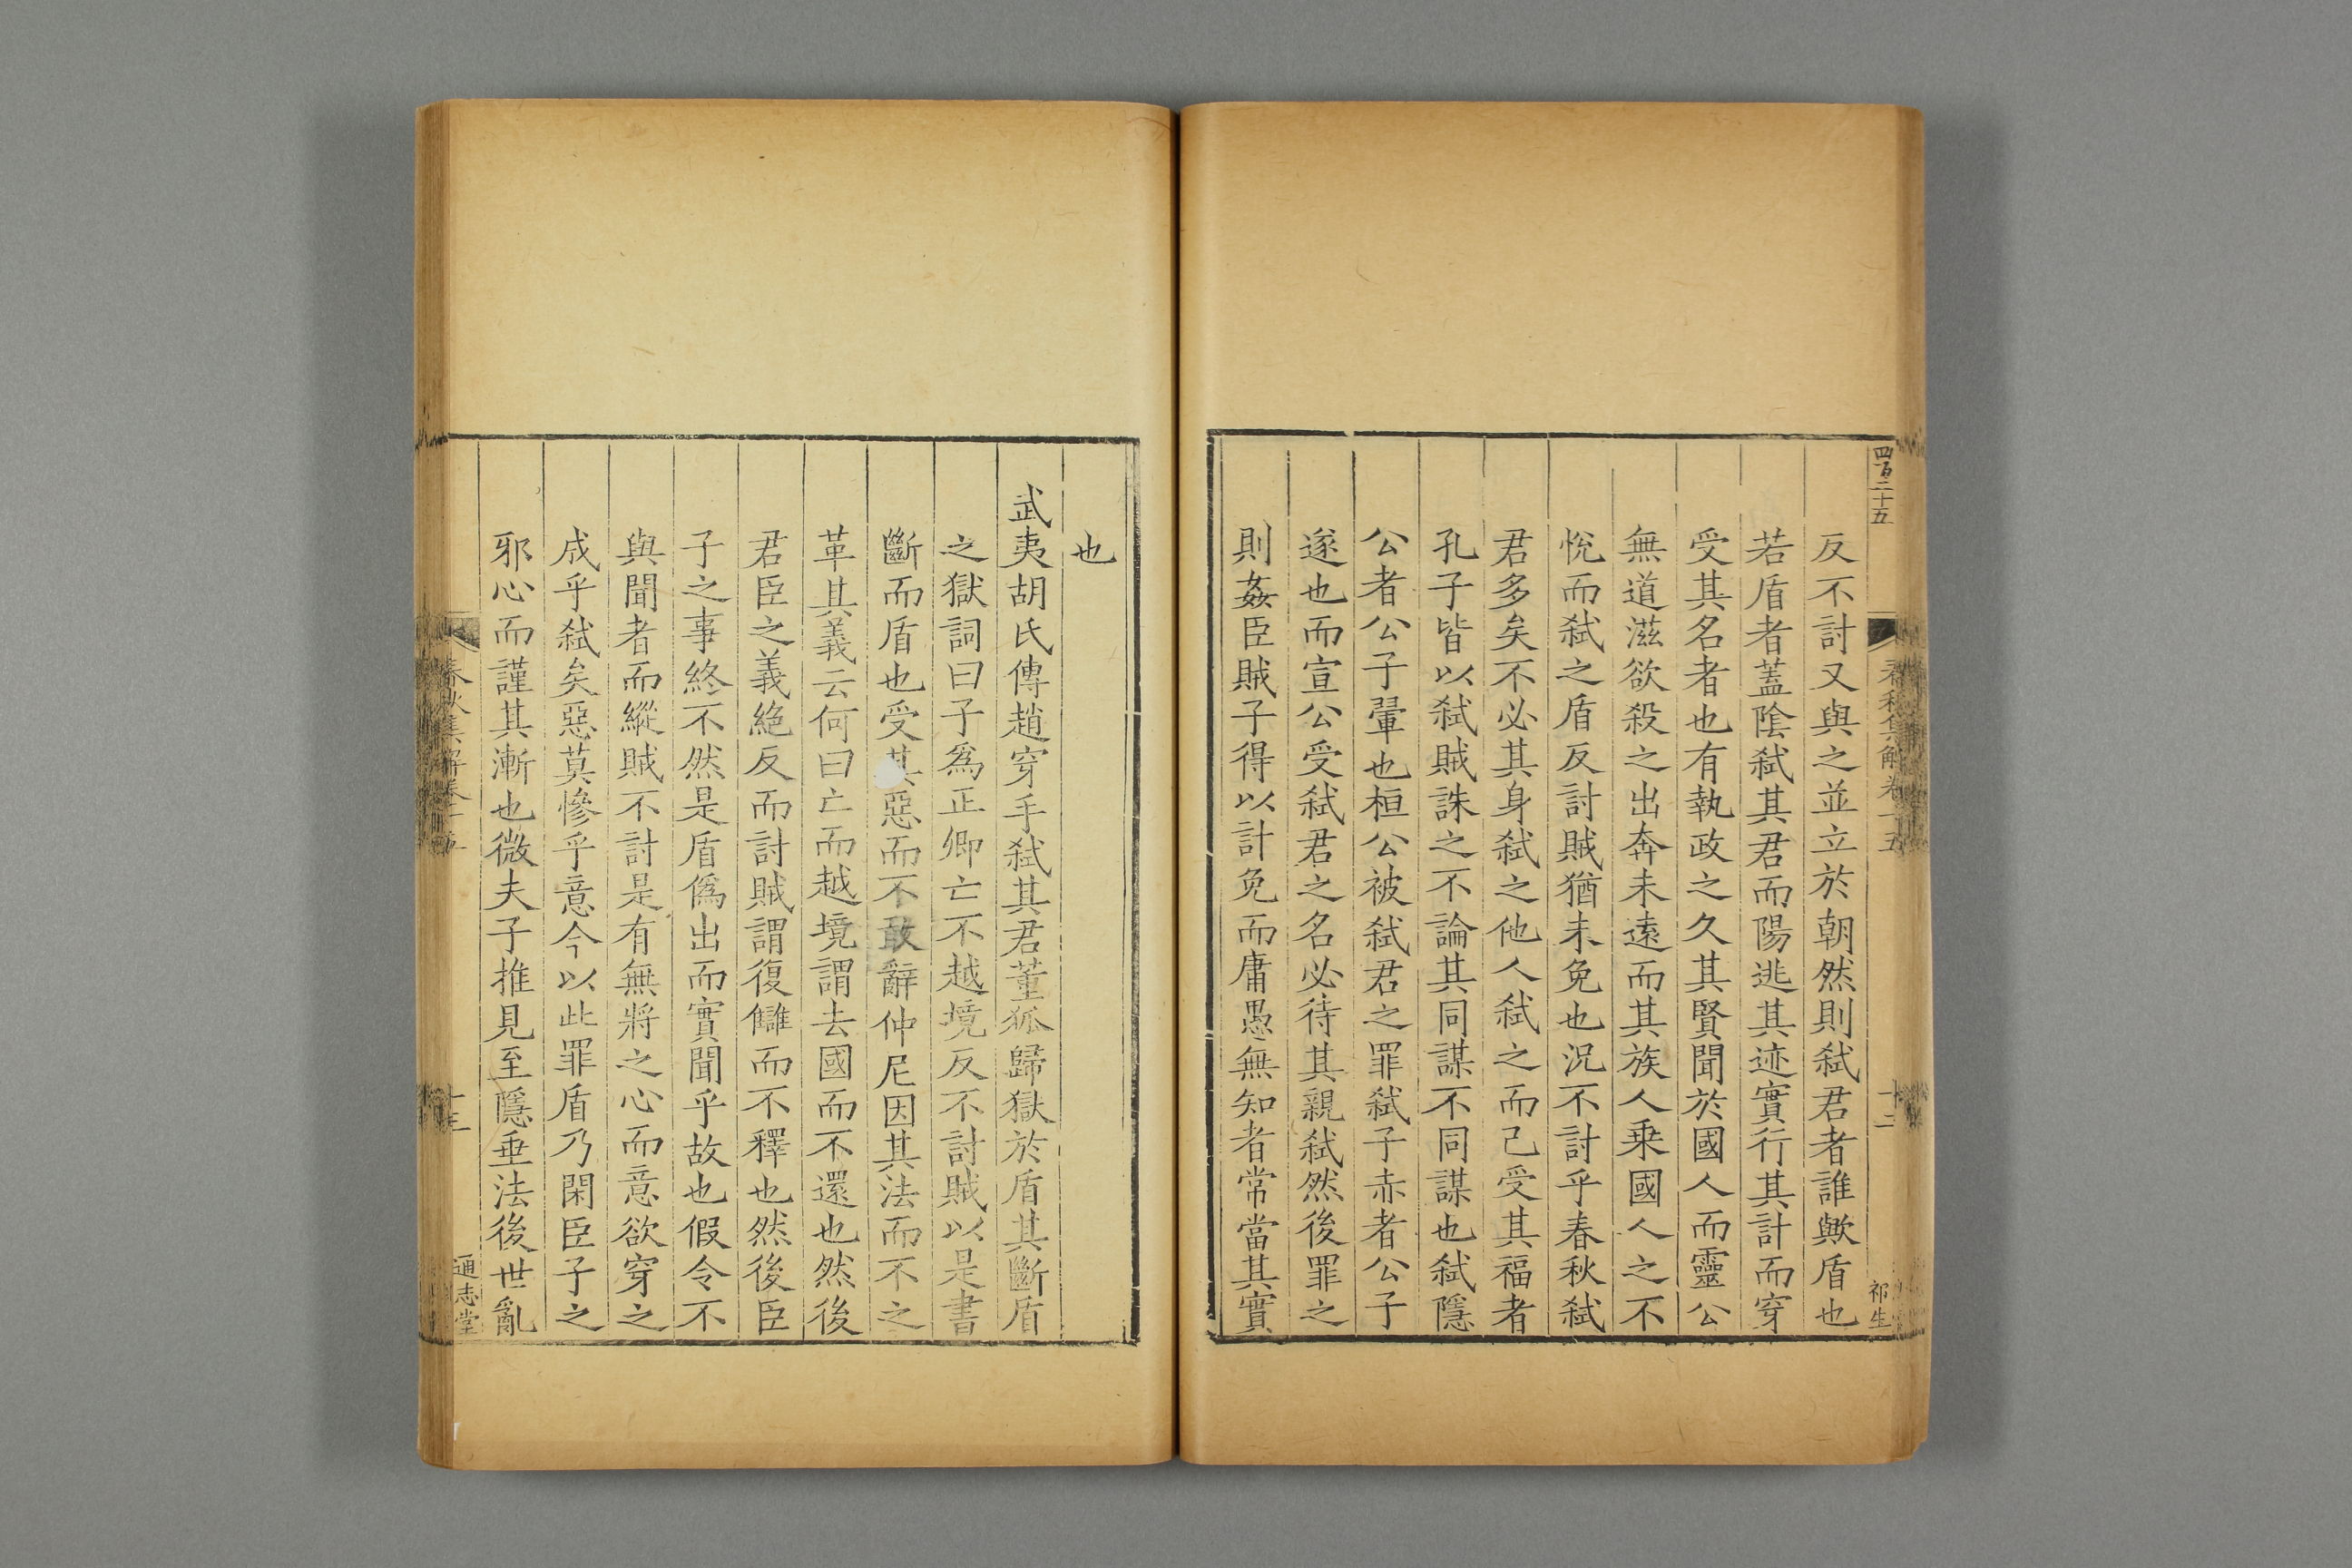 四百二十五
春秋集解卷十五
十二
祁生
反不討又與之並立於朝然則弑君者誰歟盾也
若盾者蓋陰弑其君而陽逃其迹實行其計而穿
受其名者也有執政之久其賢聞於國人而靈公
無道滋欲殺之出奔未遠而其族人乗國人之不
悅而弑之盾反討賊猶未免也況不討乎春秋弑
君多矣不必其身弑之他人弑之而己受其福者
孔子皆以弑賊誅之不論其同謀不同謀也弑隱
公者公子翬也桓公被弑君之罪弑子赤者公子
遂也而宣公受弑君之名必待其親弑然後罪之
則姦臣賊子得以計免而庸愚無知者常當其實
也
武夷胡氏傳趙穿手弑其君董狐歸獄於盾其斷盾
之獄詞曰子爲正卿亡不越境反不討賊以是書
斷而盾也受其惡而不敢辭仲尼因其法而不之
革其義云何曰亡而越境謂去國而不還也然後
君臣之義絶反而討賊謂復讎而不釋也然後臣
子之事終不然是盾僞出而實聞乎故也假令不
與聞者而縱賊不討是有無將之心而意欲穿之
成乎弑矣惡莫慘乎意今以此罪盾乃閑臣子之
邪心而謹其漸也微夫子推見至隱垂法後世亂
春秋集解卷十五
十二
通志堂